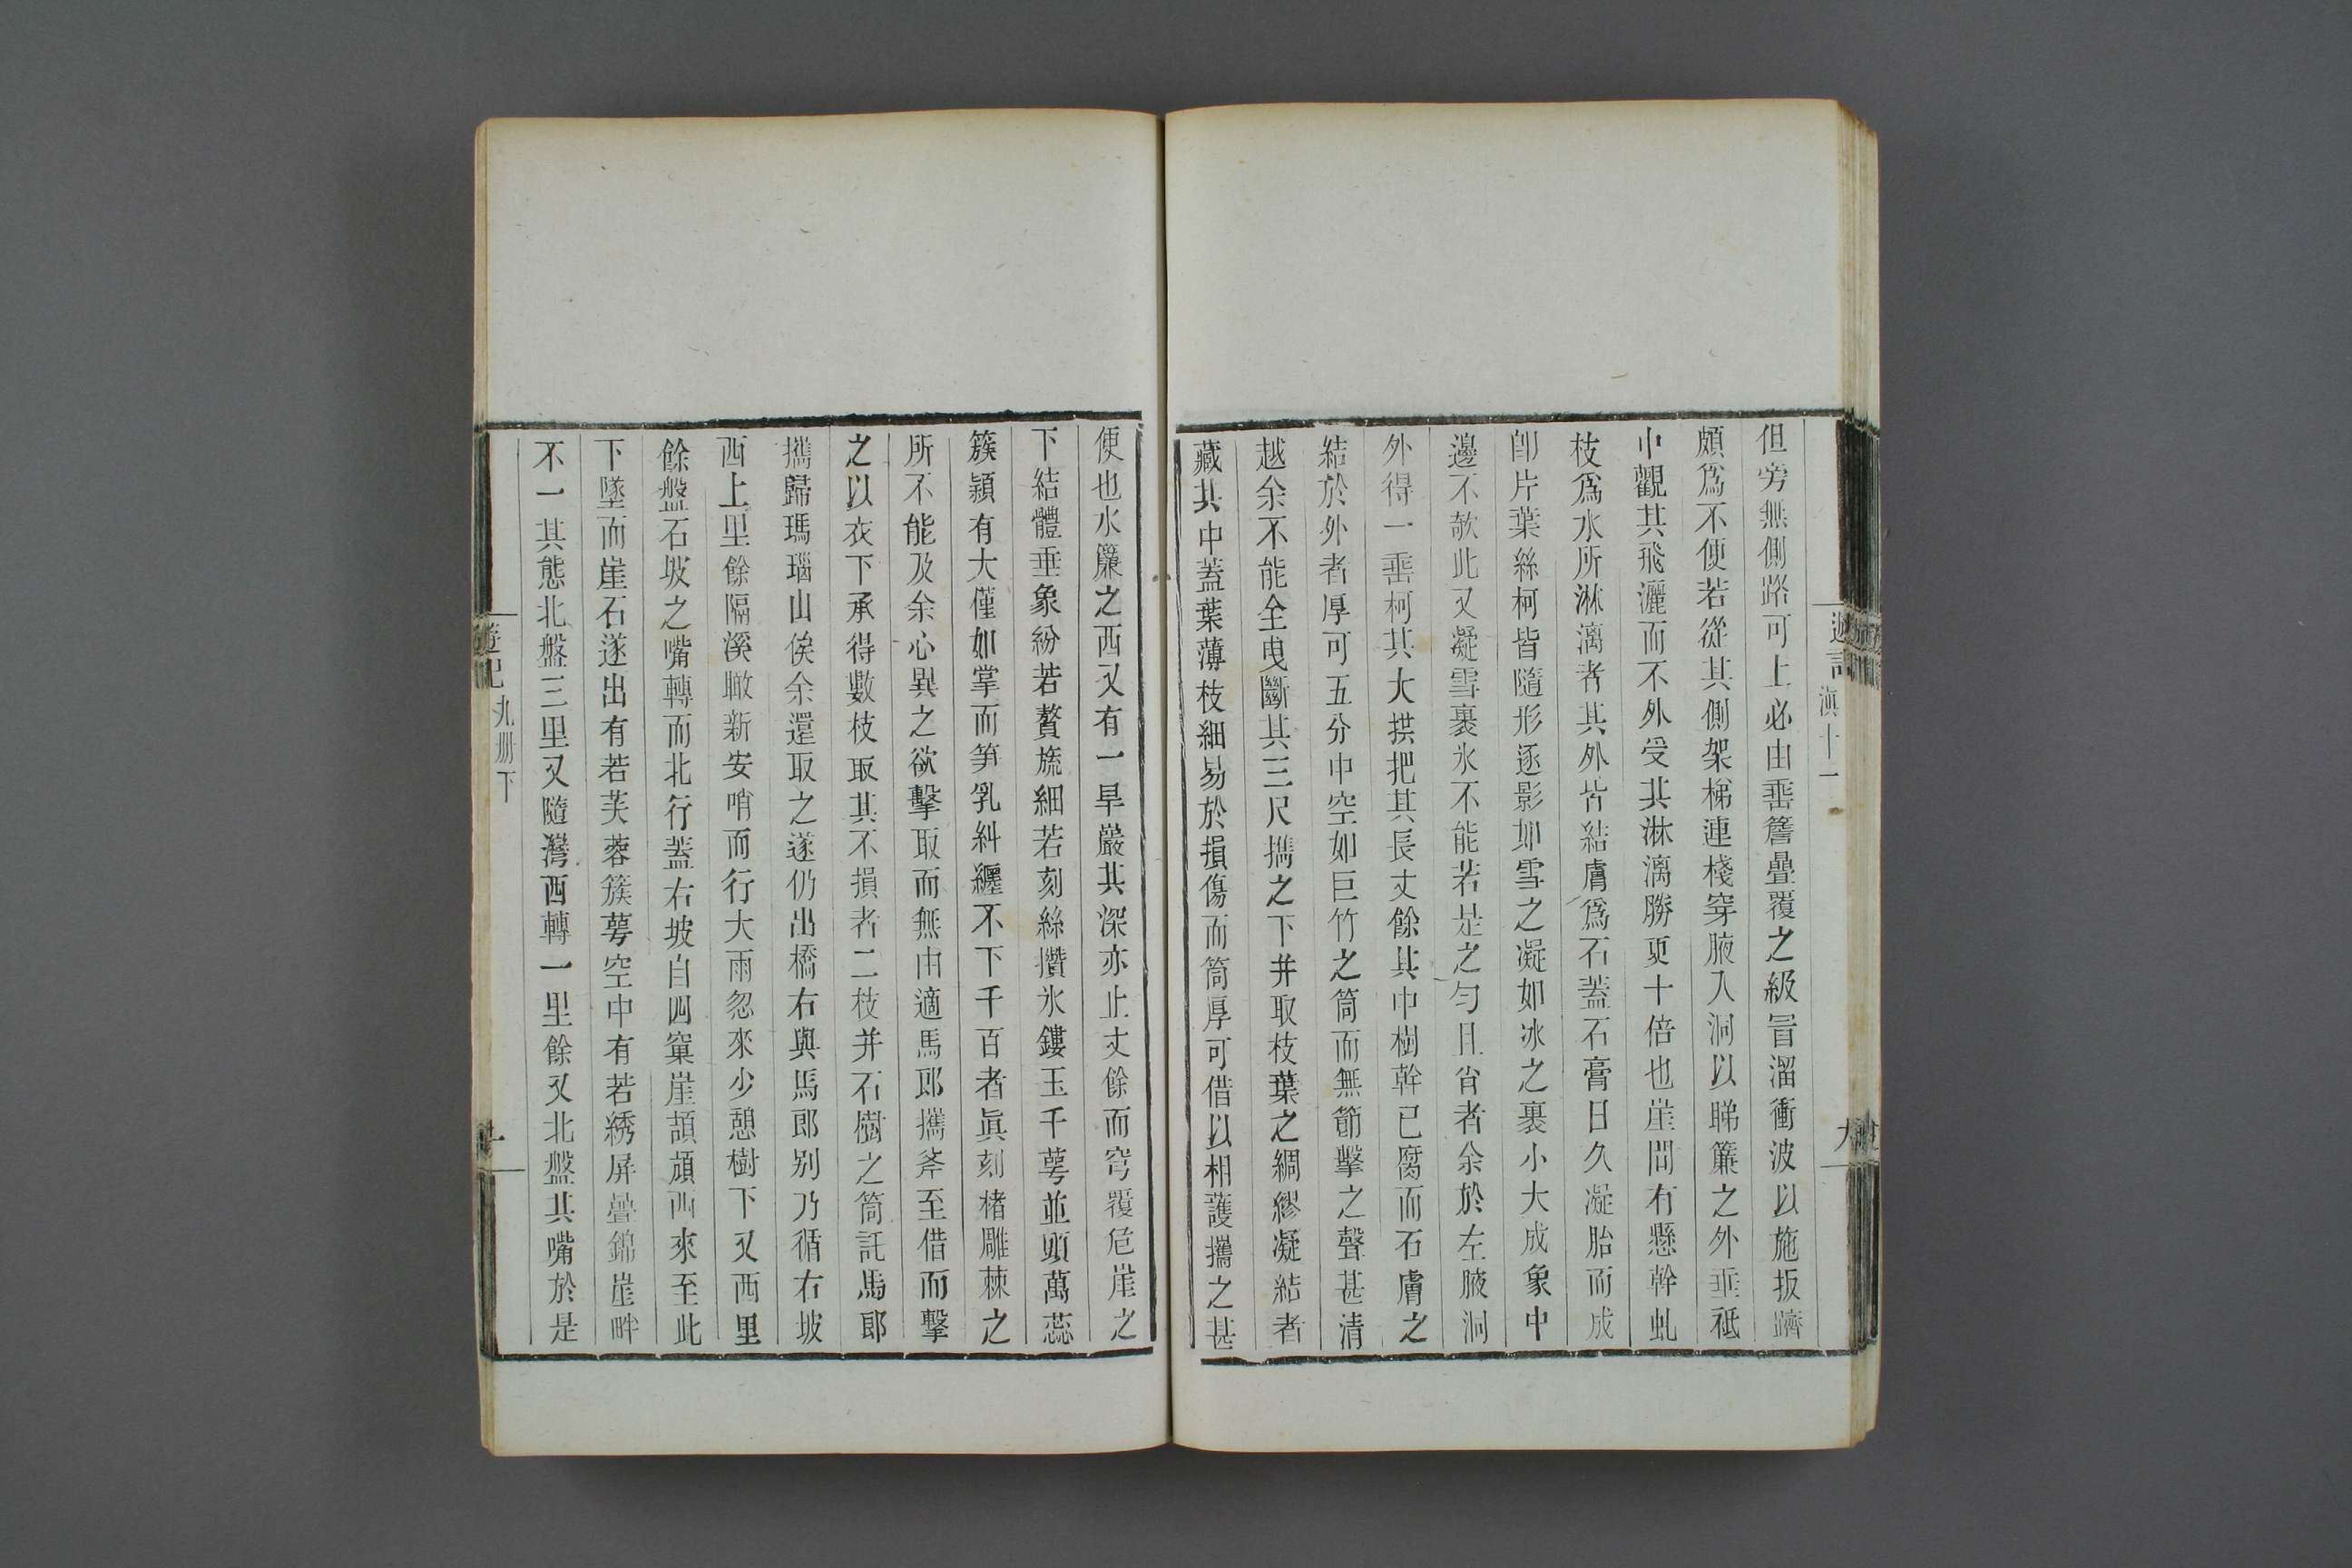 遊記 滇十一
但旁無側路可上必由垂簷疊覆之級冒溜衝波以施扳躋
頗爲不便若從其側架梯連棧穿腋入洞以睇簾之外垂祗
中觀其飛灑而不外受其淋漓勝更十倍也崖間有懸幹虬
枝爲水所淋漓者其外皆結膚爲石蓋石膏日久凝胎而成
卽片葉絲柯皆隨形逐影如雪之凝如冰之裹小大成象中
邊不欹此又凝雪裹氷不能若是之勻且肖者余於左腋洞
外得一垂柯其大拱把其長丈餘其中樹幹已腐而石膚之
結於外者厚可五分中空如巨竹之筒而無節擊之聲甚清
越余不能全曳斷其三尺攜之下并取枝葉之綢繆凝結者
藏其中蓋葉薄枝細易於損傷而筒厚可借以相護攜之甚
便也水簾之西又有一旱巖其深亦止丈餘而穹覆危崖之
下結體垂象紛若贅旒細若刻絲攢氷鏤玉千萼並頭萬蕊
簇穎有大僅如掌而笋乳糾纒不下千百者眞刻楮雕棘之
所不能及余心異之欲擊取而無由適馬郎攜斧至借而擊
之以衣下承得數枝取其不損者二枝并石樹之筒託馬郎
攜歸瑪瑙山俟余還取之遂仍出橋右與馬郎别乃循右坡
西上里餘隔溪瞰新安哨而行大雨忽來少憩樹下又西里
餘盤石坡之嘴轉而北行蓋右坡自四窠崖頡頏西來至此
下墜而崖石遂出有若芙蓉簇萼空中有若綉屏疊錦崖畔
不一其態北盤三里又隨灣西轉一里餘又北盤其嘴於是
遊記 九册下